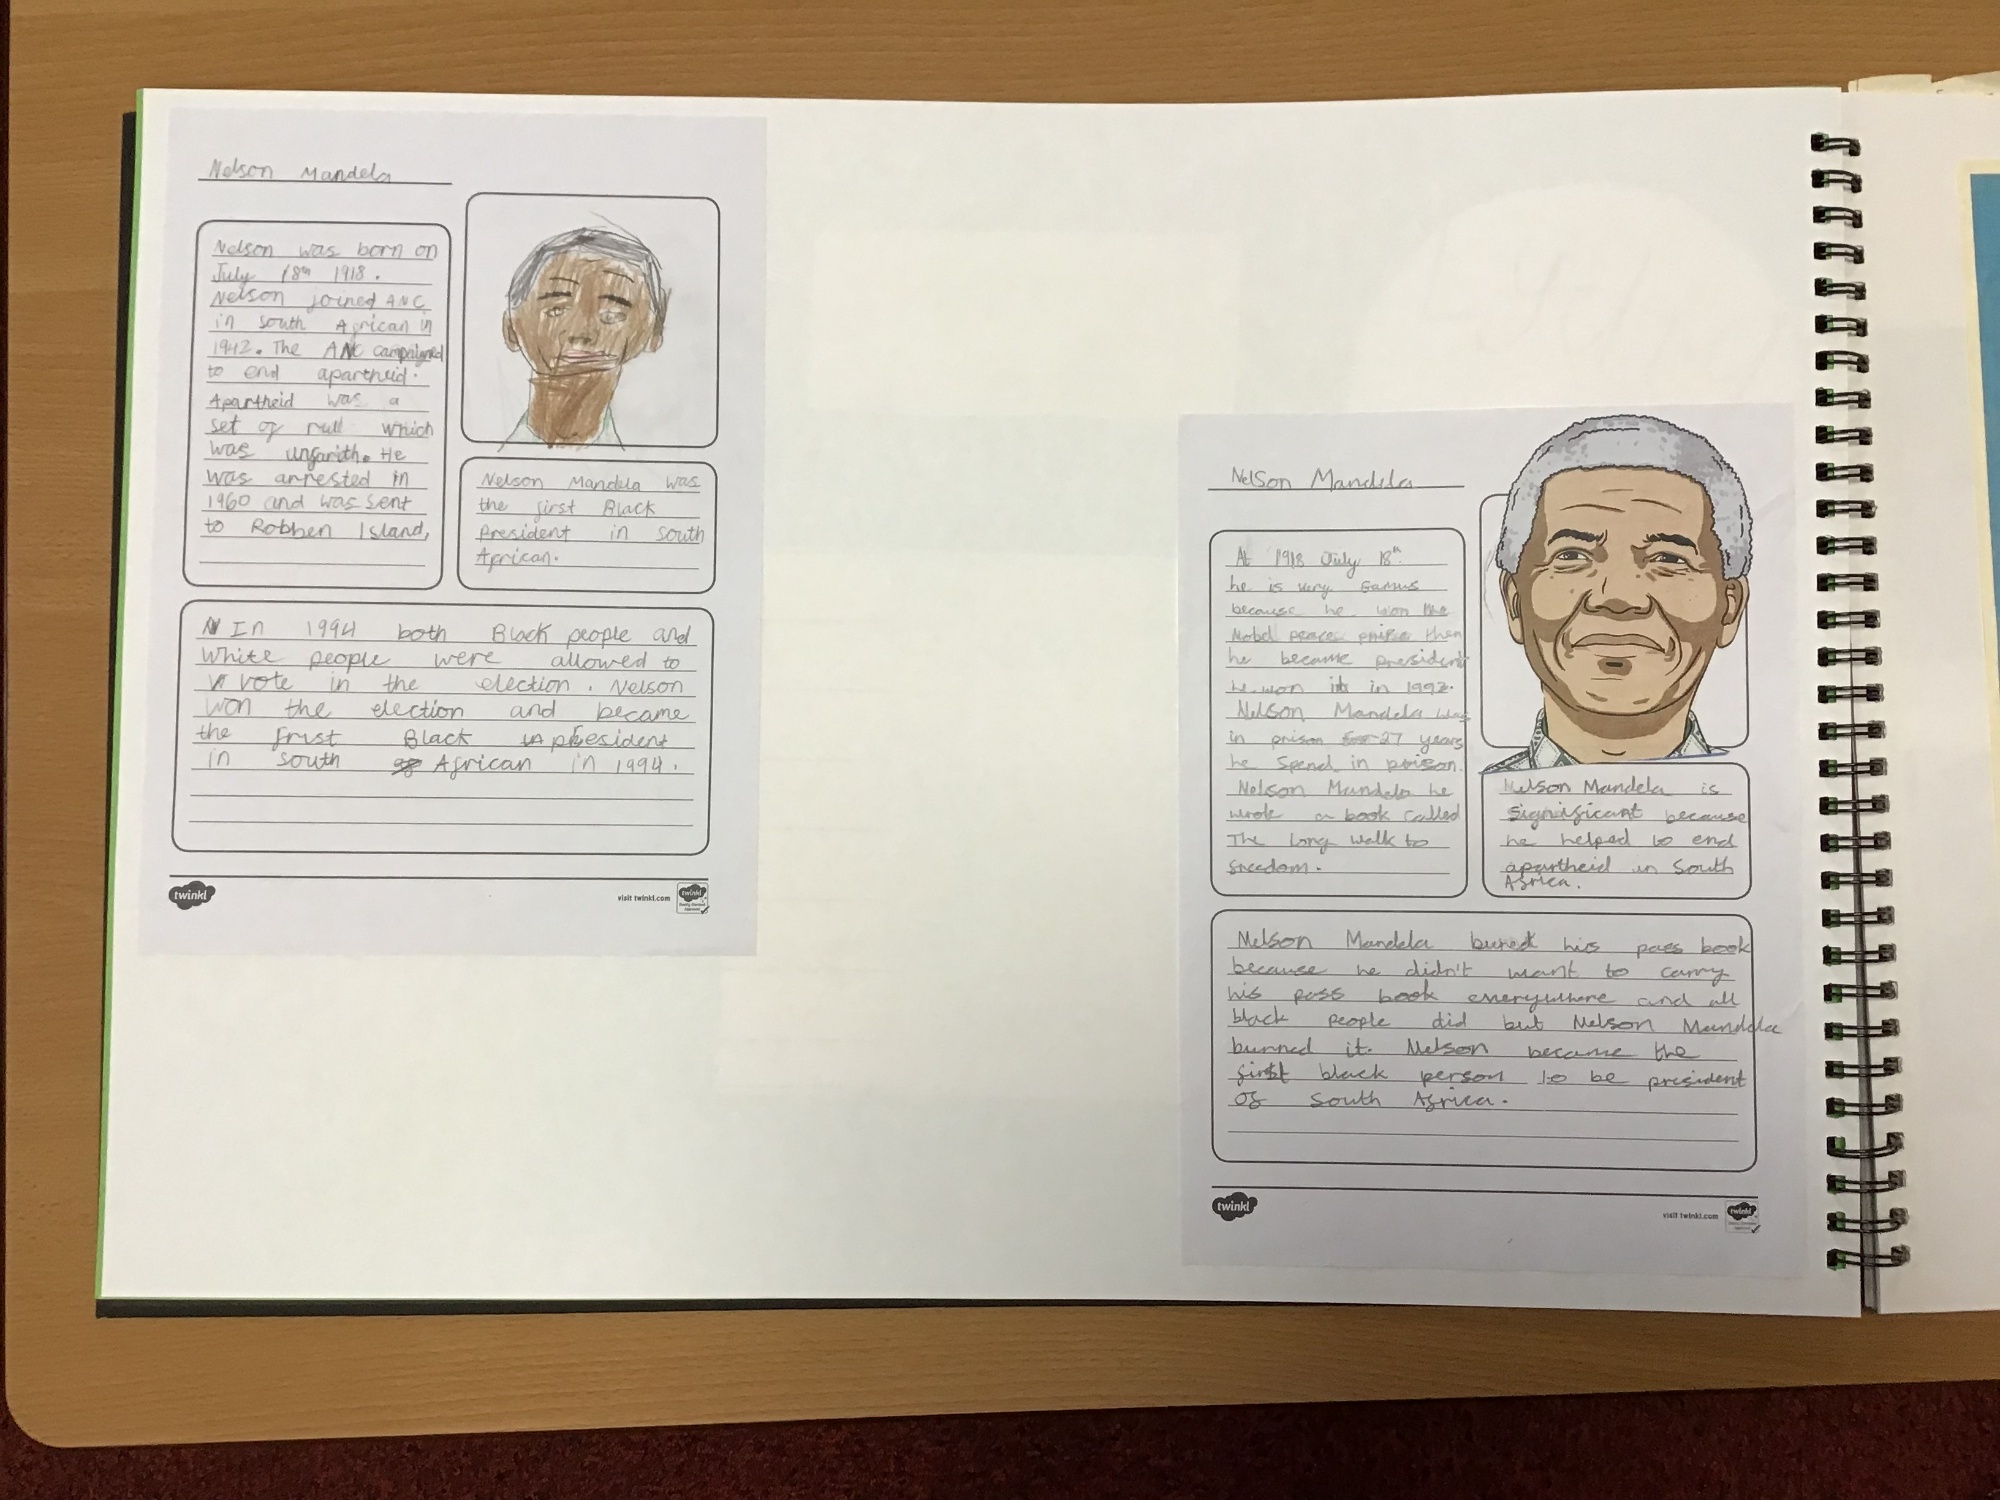 Nelson Mandela
Nelson was born on
July 18th 1918.
Nelson joined ANC
in south African in
1942. The ANC campaigned
to end apartheid.
Apartheid was a
set of rull which
was unfarith. He
was arrested in
1960 and was sent
to Robben Island,
Nelson Mandela was
the first Black
President in south
African.
In 1994 both Black people and
White people were allowed to
vote in the election. Nelson
won the election and became
the frist Black president
in south African in 1994.
twinkl
visit twinkl.com
twinkl
Nelson Mandela
At 1918 July 18th.
he is very famus
because he won the
Nobel peaces then
he became president
he won it in 1992.
Nelson Mandela was
in prison 27 years
he Spend in poison.
Nelson Mandela he
wrok a book called
The Long walk to
freedom.
Nelson Mandela is
significant because
he helped to end
apartheid in South
Africa.
Nelson Mandela buned his pass book
because he didn't want to carry
his pass book enerywhere and all
black people did but Nelson Mandela
bunned it. Nelson became the
first black person to be president
of South Africa.
twinkl
visit twinkl.com
twinkl